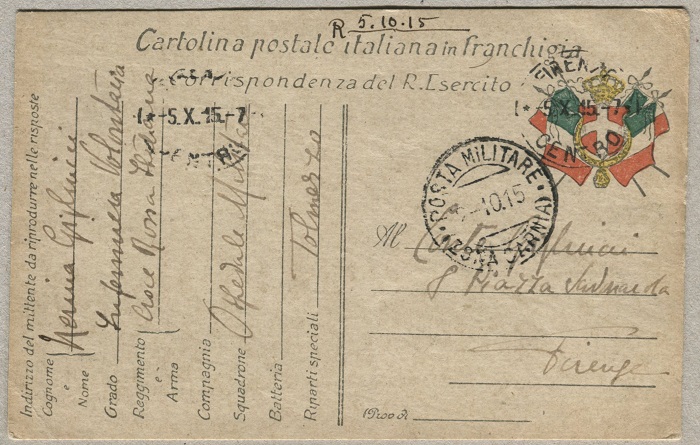 R 5.10.15
Cartolina postale italiana in franchigia
Corrispondenza del R. Esercito
FIRENZE
5.X.15.-7
CENTRO
5.X.15.-7
POSTA MILITARE
-.10.15
ZONA CARNIA
Indirizzo del mittente da riprodurre nelle risposte
Cognome e Nome Nerina
Grado Infermiera Volontaria
Reggimento e Arma Croce Rossa Italiana
Compagnia
Squadrone Ospedale Militare
Batteria
Riparti speciali Tolmezzo
Al
8 Piazza
Firenze
(Prov. di